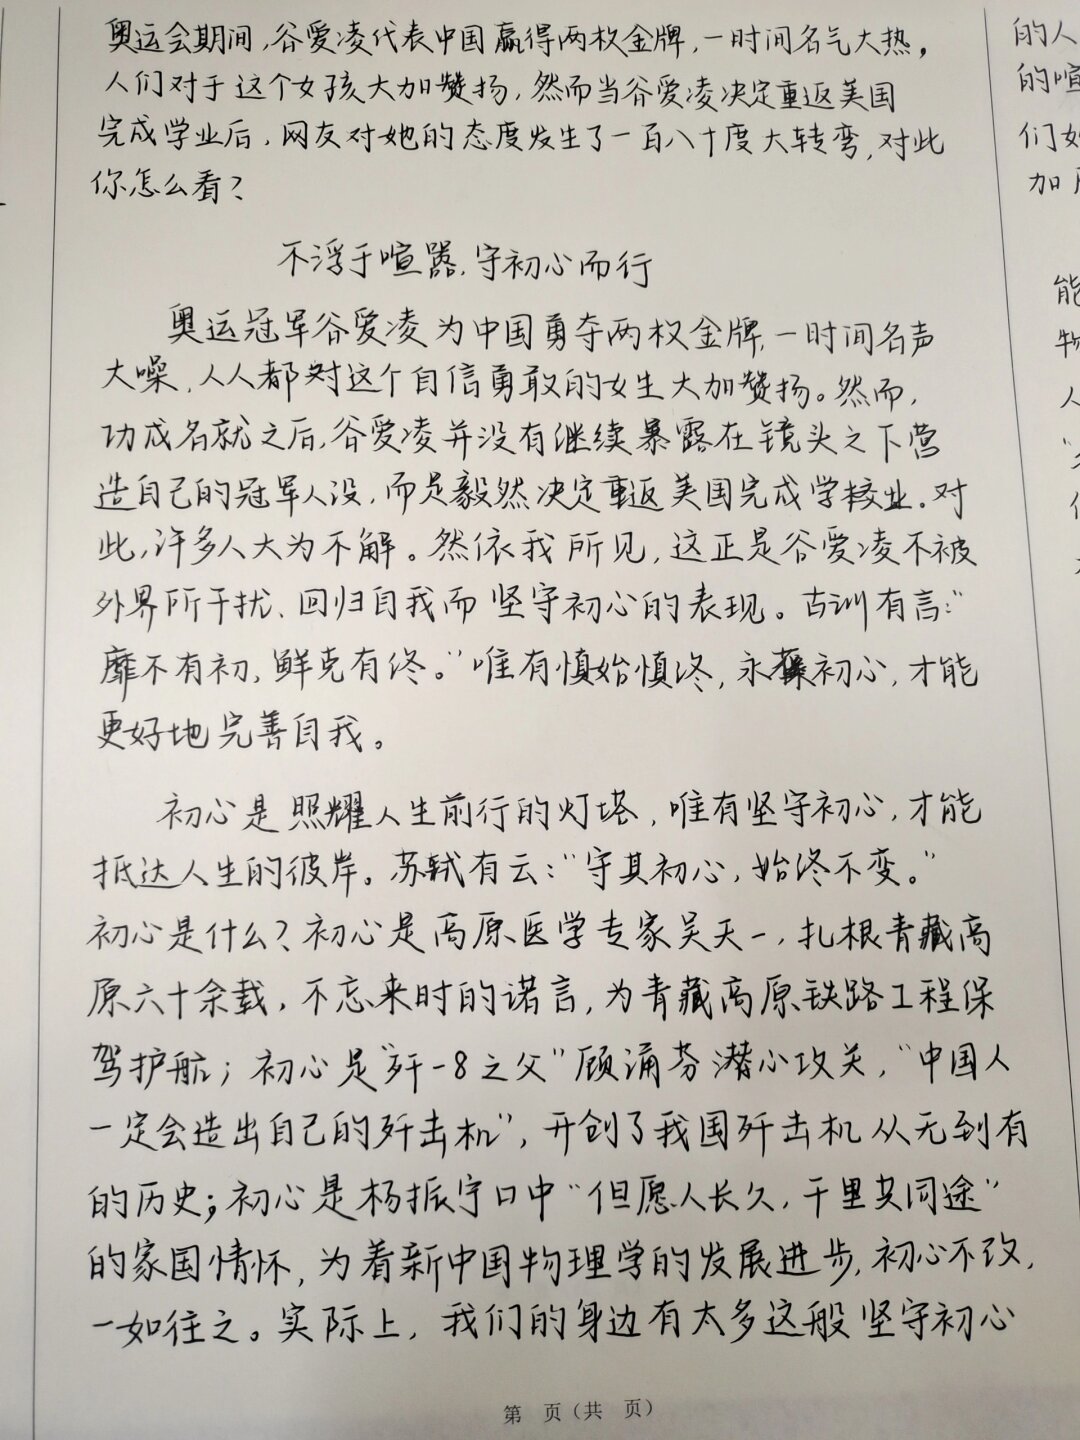 奥运会期间,谷爱凌代表中国赢得两枚金牌,一时间名气大热,
人们对于这个女孩大加赞扬,然而当谷爱凌决定重返美国
完成学业后,网友对她的态度发生了一百八十度大转弯,对此
你怎么看?
不浮于喧嚣,守初心而行
奥运冠军谷爱凌为中国勇夺两枚金牌,一时间名声
大噪,人人都对这个自信勇敢的女生大加赞扬。然而,
功成名就之后,谷爱凌并没有继续暴露在镜头之下营
造自己的冠军人设,而是毅然决定重返美国完成学业。对
此,许多人大为不解。然依我所见,这正是谷爱凌不被
外界所干扰、回归自我而坚守初心的表现。古训有言:“
靡不有初,鲜克有终。”唯有慎始慎终,永葆初心,才能
更好地完善自我。
初心是照耀人生前行的灯塔,唯有坚守初心,才能
抵达人生的彼岸。苏轼有云:“守其初心,始终不变。”
初心是什么?初心是高原医学专家吴天一,扎根青藏高
原六十余载,不忘来时的诺言,为青藏高原铁路工程保
驾护航;初心是“歼-8之父”顾诵芬潜心攻关,“中国人
一定会造出自己的歼击机”,开创了我国歼击机从无到有
的历史;初心是杨振宁口中“但愿人长久,千里共同途”
的家国情怀,为着新中国物理学的发展进步,初心不改,
一如往之。实际上,我们的身边有太多这般坚守初心
第 页(共 页)
的人
的喧
们如
加
能
物
人